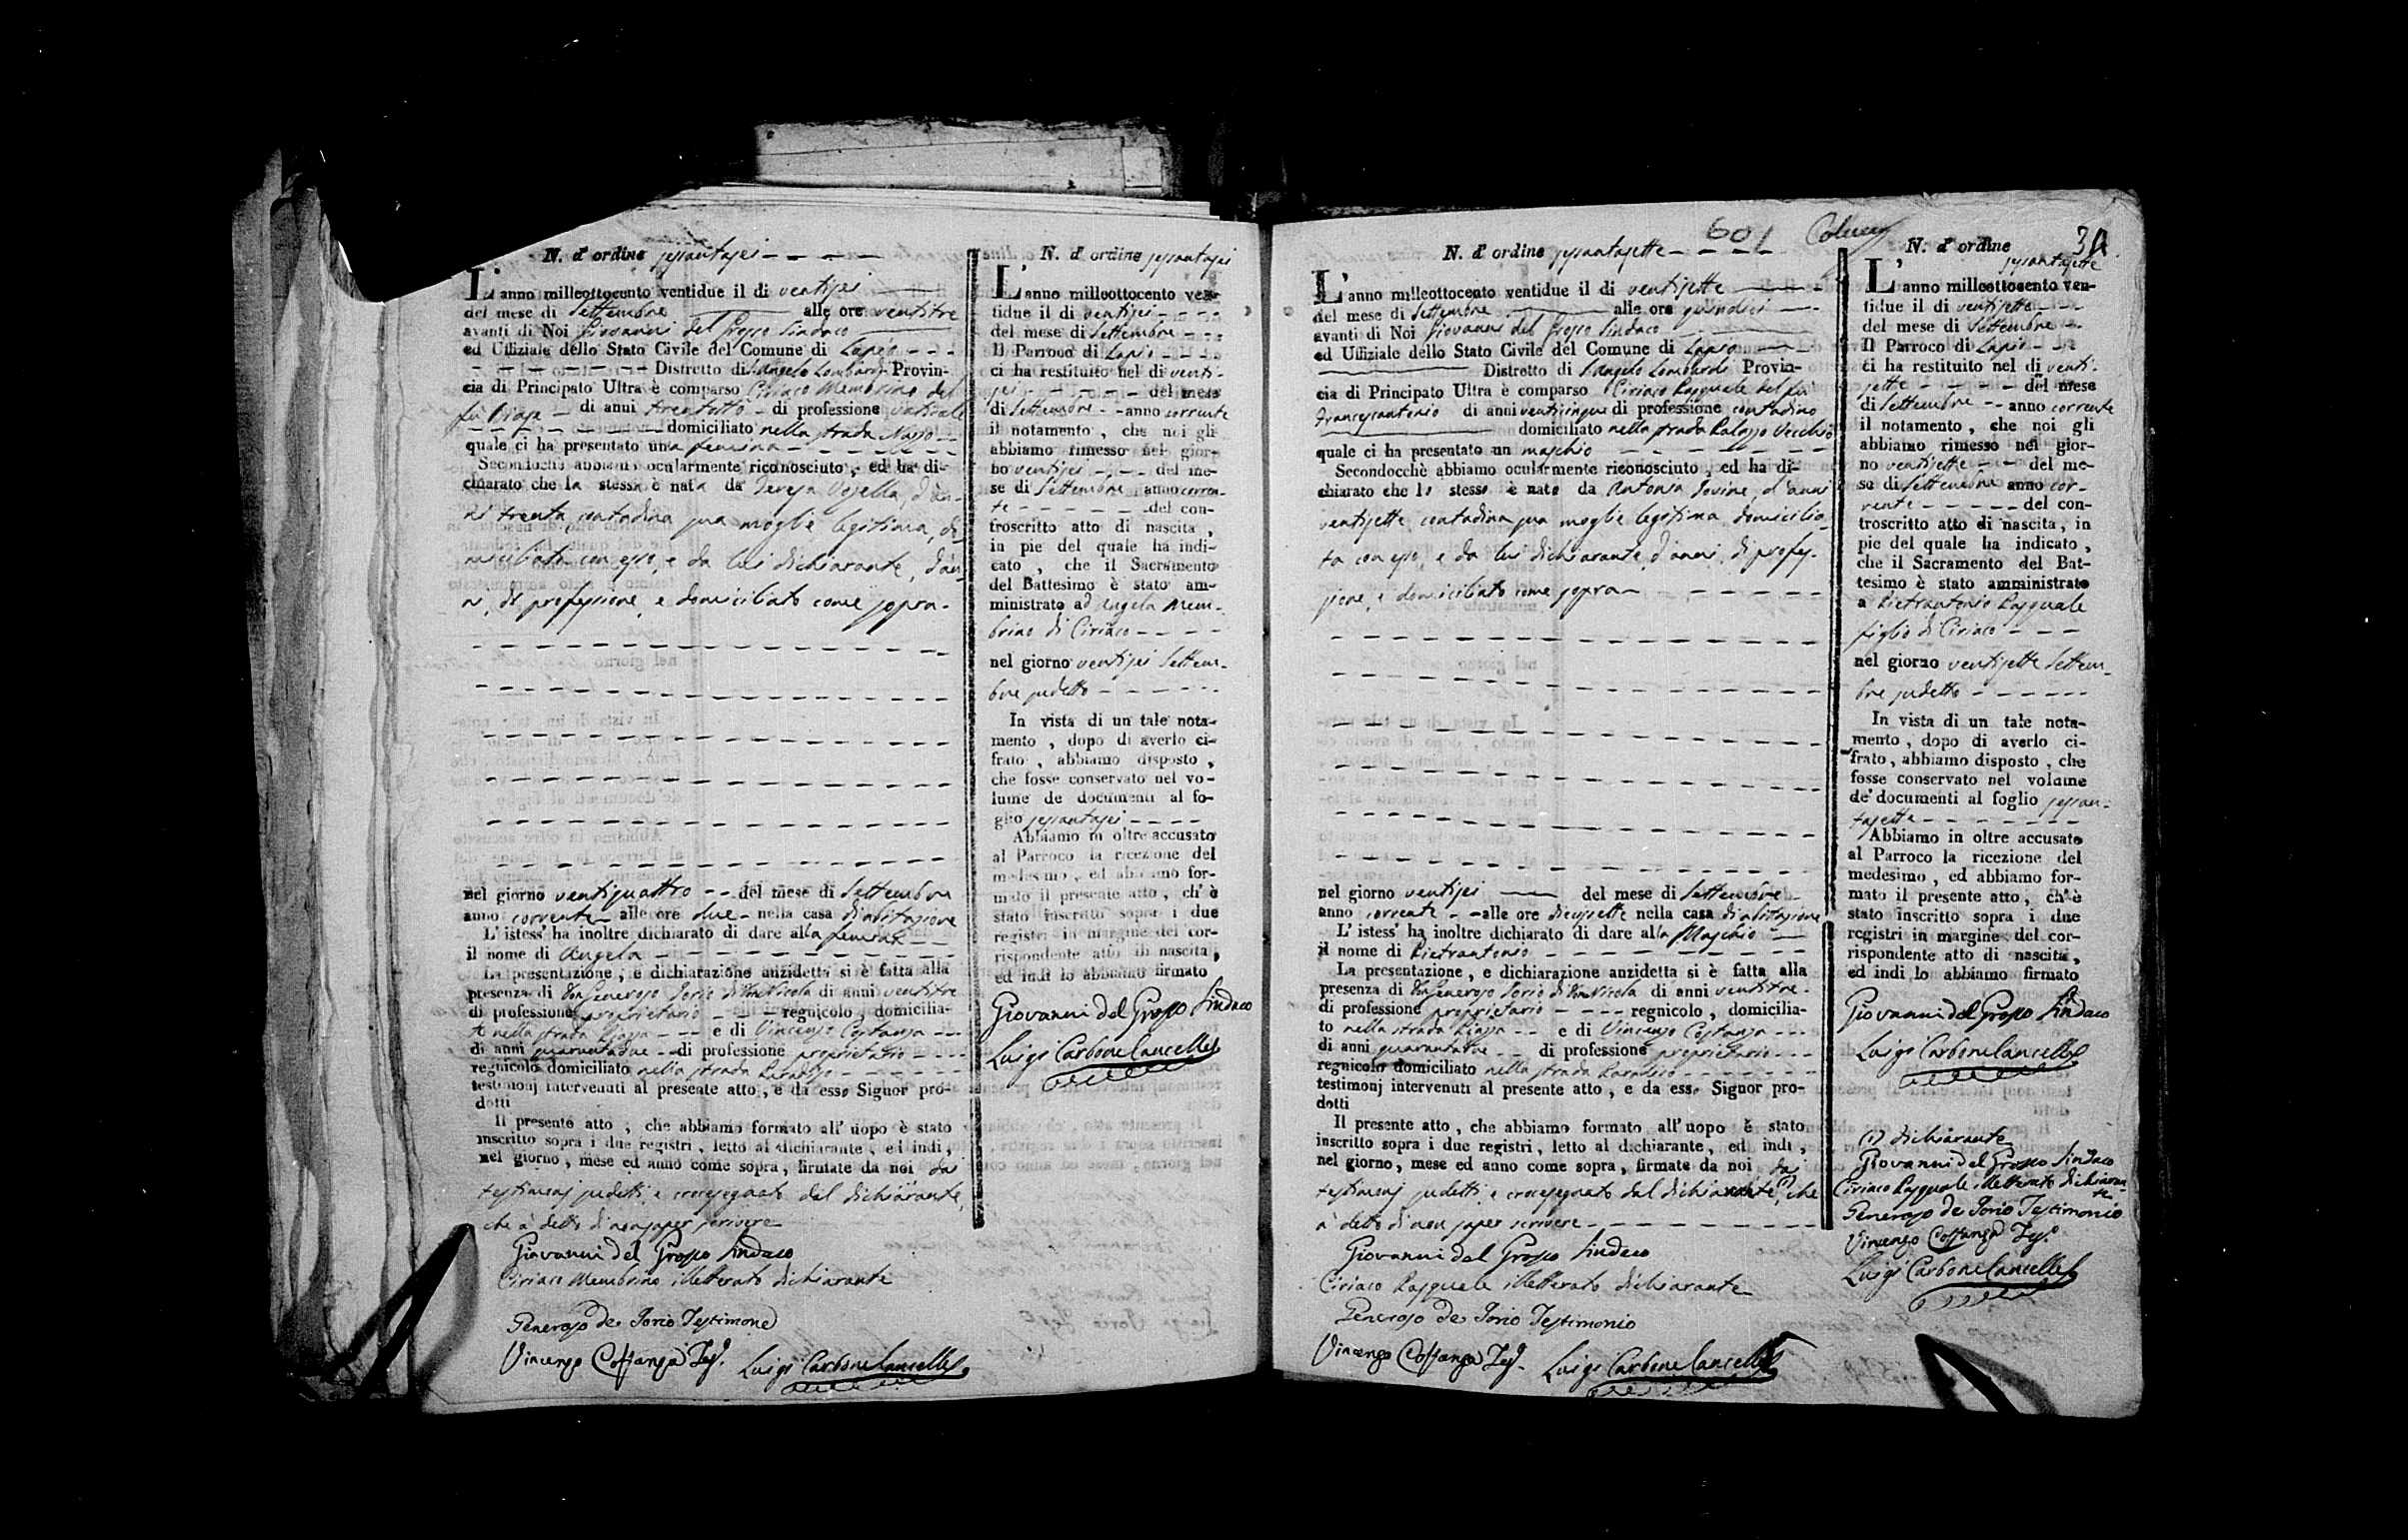 N. d'ordine sessantasei
L'anno milleottocento ventidue il di ventisei
del mese di Settembre alle ore ventitre
avanti di Noi Giovanni del Grosso Sindaco
ed Uffiziale dello Stato Civile del Comune di Lapio
Distretto di S. Angelo Lombardi Provin-
cia di Principato Ultra è comparso Ciriaco Membrino del
fù Biase di anni trentotto di professione vaticale
domiciliato nella strada
quale ci ha presentato una femina
Secondochè abbiamo ocularmente riconosciuto, ed ha di-
chiarato che la stessa è nata da Teresa Vosella, d'an-
ni trenta contadina sua moglie legitima, do-
miciliata con esso, e da lui dichiarante, d'an-
ni, di professione, e domiciliato come sopra.
nel giorno ventiquattro del mese di Settembre
anno corrente alle ore due nella casa di abitazione
L'istess' ha inoltre dichiarato di dare alla femina
il nome di Angela
La presentazione, e dichiarazione anzidetta si è fatta alla
presenza di Don Generoso Iorio di Don Nicola di anni ventitre
di professione proprietario regnicolo, domicilia-
to nella strada Piazza e di Vincenzo Costanza
di anni quarantadue di professione proprietario
regnicolo domiciliato nella strada Paradiso
testimonj intervenuti al presente atto, e da esso Signor pro-
dotti
Il presente atto, che abbiamo formato all'uopo è stato
inscritto sopra i due registri, letto al dichiarante, ed indi,
nel giorno, mese ed anno come sopra, firmate da noi da
testimonj sudetti e crocesegnato dal dichiarante,
che à detto di non saper scrivere
Giovanni del Grosso Sindaco
Ciriaco Membrino illetterato dichiarante
Generoso de Iorio Testimone
Vincenzo Costanza Tes.
Luigi Carbone Cancelle
N. d'ordine sessantasei
L'anno milleottocento ven-
tidue il di ventisei
del mese di Settembre
Il Parroco di Lapio
ci ha restituito nel di venti-
sei del mese
di Settembre anno corrente
il notamento, che noi gli
abbiamo rimesso nel gior-
no ventisei del me-
se di Settembre anno corren-
te del con-
troscritto atto di nascita,
in pie del quale ha indi-
cato, che il Sacramento
del Battesimo è stato am-
ministrato ad Angela Mem-
brino di Ciriaco
nel giorno ventisei Settem-
bre sudetto
In vista di un tale nota-
mento, dopo di averlo ci-
frato, abbiamo disposto,
che fosse conservato nel vo-
lume de documenti al fo-
glio sessantasei
Abbiamo in oltre accusato
al Parroco la ricezione del
medesimo, ed abbiamo for-
mato il presente atto, ch'è
stato inscritto sopra i due
registri in margine del cor-
rispondente atto di nascita,
ed indi lo abbiamo firmato
Giovanni del Grosso Sindaco
Luigi Carbone Cancelle
601
N. d'ordine sessantasette
L'anno milleottocento ventidue il di ventisette
del mese di Settembre alle ore quindici
avanti di Noi Giovanni del Grosso Sindaco
ed Uffiziale dello Stato Civile del Comune di Lapio
Distretto di S. Angelo Lombardi Provin-
cia di Principato Ultra è comparso Ciriaco Pasquale del fù
Francescantonio di anni venticinque di professione contadino
domiciliato nella strada Palazzo Vecchio
quale ci ha presentato un maschio
Secondocchè abbiamo ocularmente riconosciuto, ed ha di-
chiarato che lo stesso è nato da Antonia Iovine, d'anni
ventisette contadina sua moglie legitima domicilia-
ta con esso, e da lui dichiarante, d'anni, di profes-
sione, e domiciliato come sopra
nel giorno ventisei del mese di Settembre
anno corrente alle ore diecisette nella casa di abitazione
L'istess' ha inoltre dichiarato di dare alla Maschio
il nome di Pietrantonio
La presentazione, e dichiarazione anzidetta si è fatta alla
presenza di Don Generoso Iorio di Don Nicola di anni ventitre
di professione proprietario regnicolo, domicilia-
to nella strada Piazza e di Vincenzo Costanza
di anni quarantadue di professione proprietario
regnicolo domiciliato nella strada Paradiso
testimonj intervenuti al presente atto, e da esso Signor pro-
dotti
Il presente atto, che abbiamo formato all'uopo è stato
inscritto sopra i due registri, letto al dichiarante, ed indi,
nel giorno, mese ed anno come sopra, firmate da noi dai
testimonj sudetti e crocesegnato dal dichiarante (1), che
à detto di non saper scrivere
Giovanni del Grosso Sindaco
Ciriaco Pasquale illetterato dichiarante
Generoso de Iorio Testimonio
Vincenzo Costanza Tes.
Luigi Carbone Cancelle
N. d'ordine
sessantasette
L'anno milleottocento ven-
tidue il di ventisette
del mese di Settembre
Il Parroco di Lapio
ci ha restituito nel di venti-
sette del mese
di Settembre anno corrente
il notamento, che noi gli
abbiamo rimesso nel gior-
no ventisette del me-
se di Settembre anno cor-
rente del con-
troscritto atto di nascita, in
pie del quale ha indicato,
che il Sacramento del Bat-
tesimo è stato amministrato
a Pietrantonio Pasquale
figlio di Ciriaco
nel giorno ventisette Settem-
bre sudetto
In vista di un tale nota-
mento, dopo di averlo ci-
frato, abbiamo disposto, che
fosse conservato nel volume
de' documenti al foglio sessan-
tasette
Abbiamo in oltre accusato
al Parroco la ricezione del
medesimo, ed abbiamo for-
mato il presente atto, ch'è
stato inscritto sopra i due
registri in margine del cor-
rispondente atto di nascita,
ed indi lo abbiamo firmato
Giovanni del Grosso Sindaco
Luigi Carbone Cancelle
(1) dichiarante
Giovanni del Grosso Sindaco
Ciriaco Pasquale illetterato dichiaran-
te
Generoso de Iorio Testimonio
Vincenzo Costanza Tes.
Luigi Carbone Cancelle